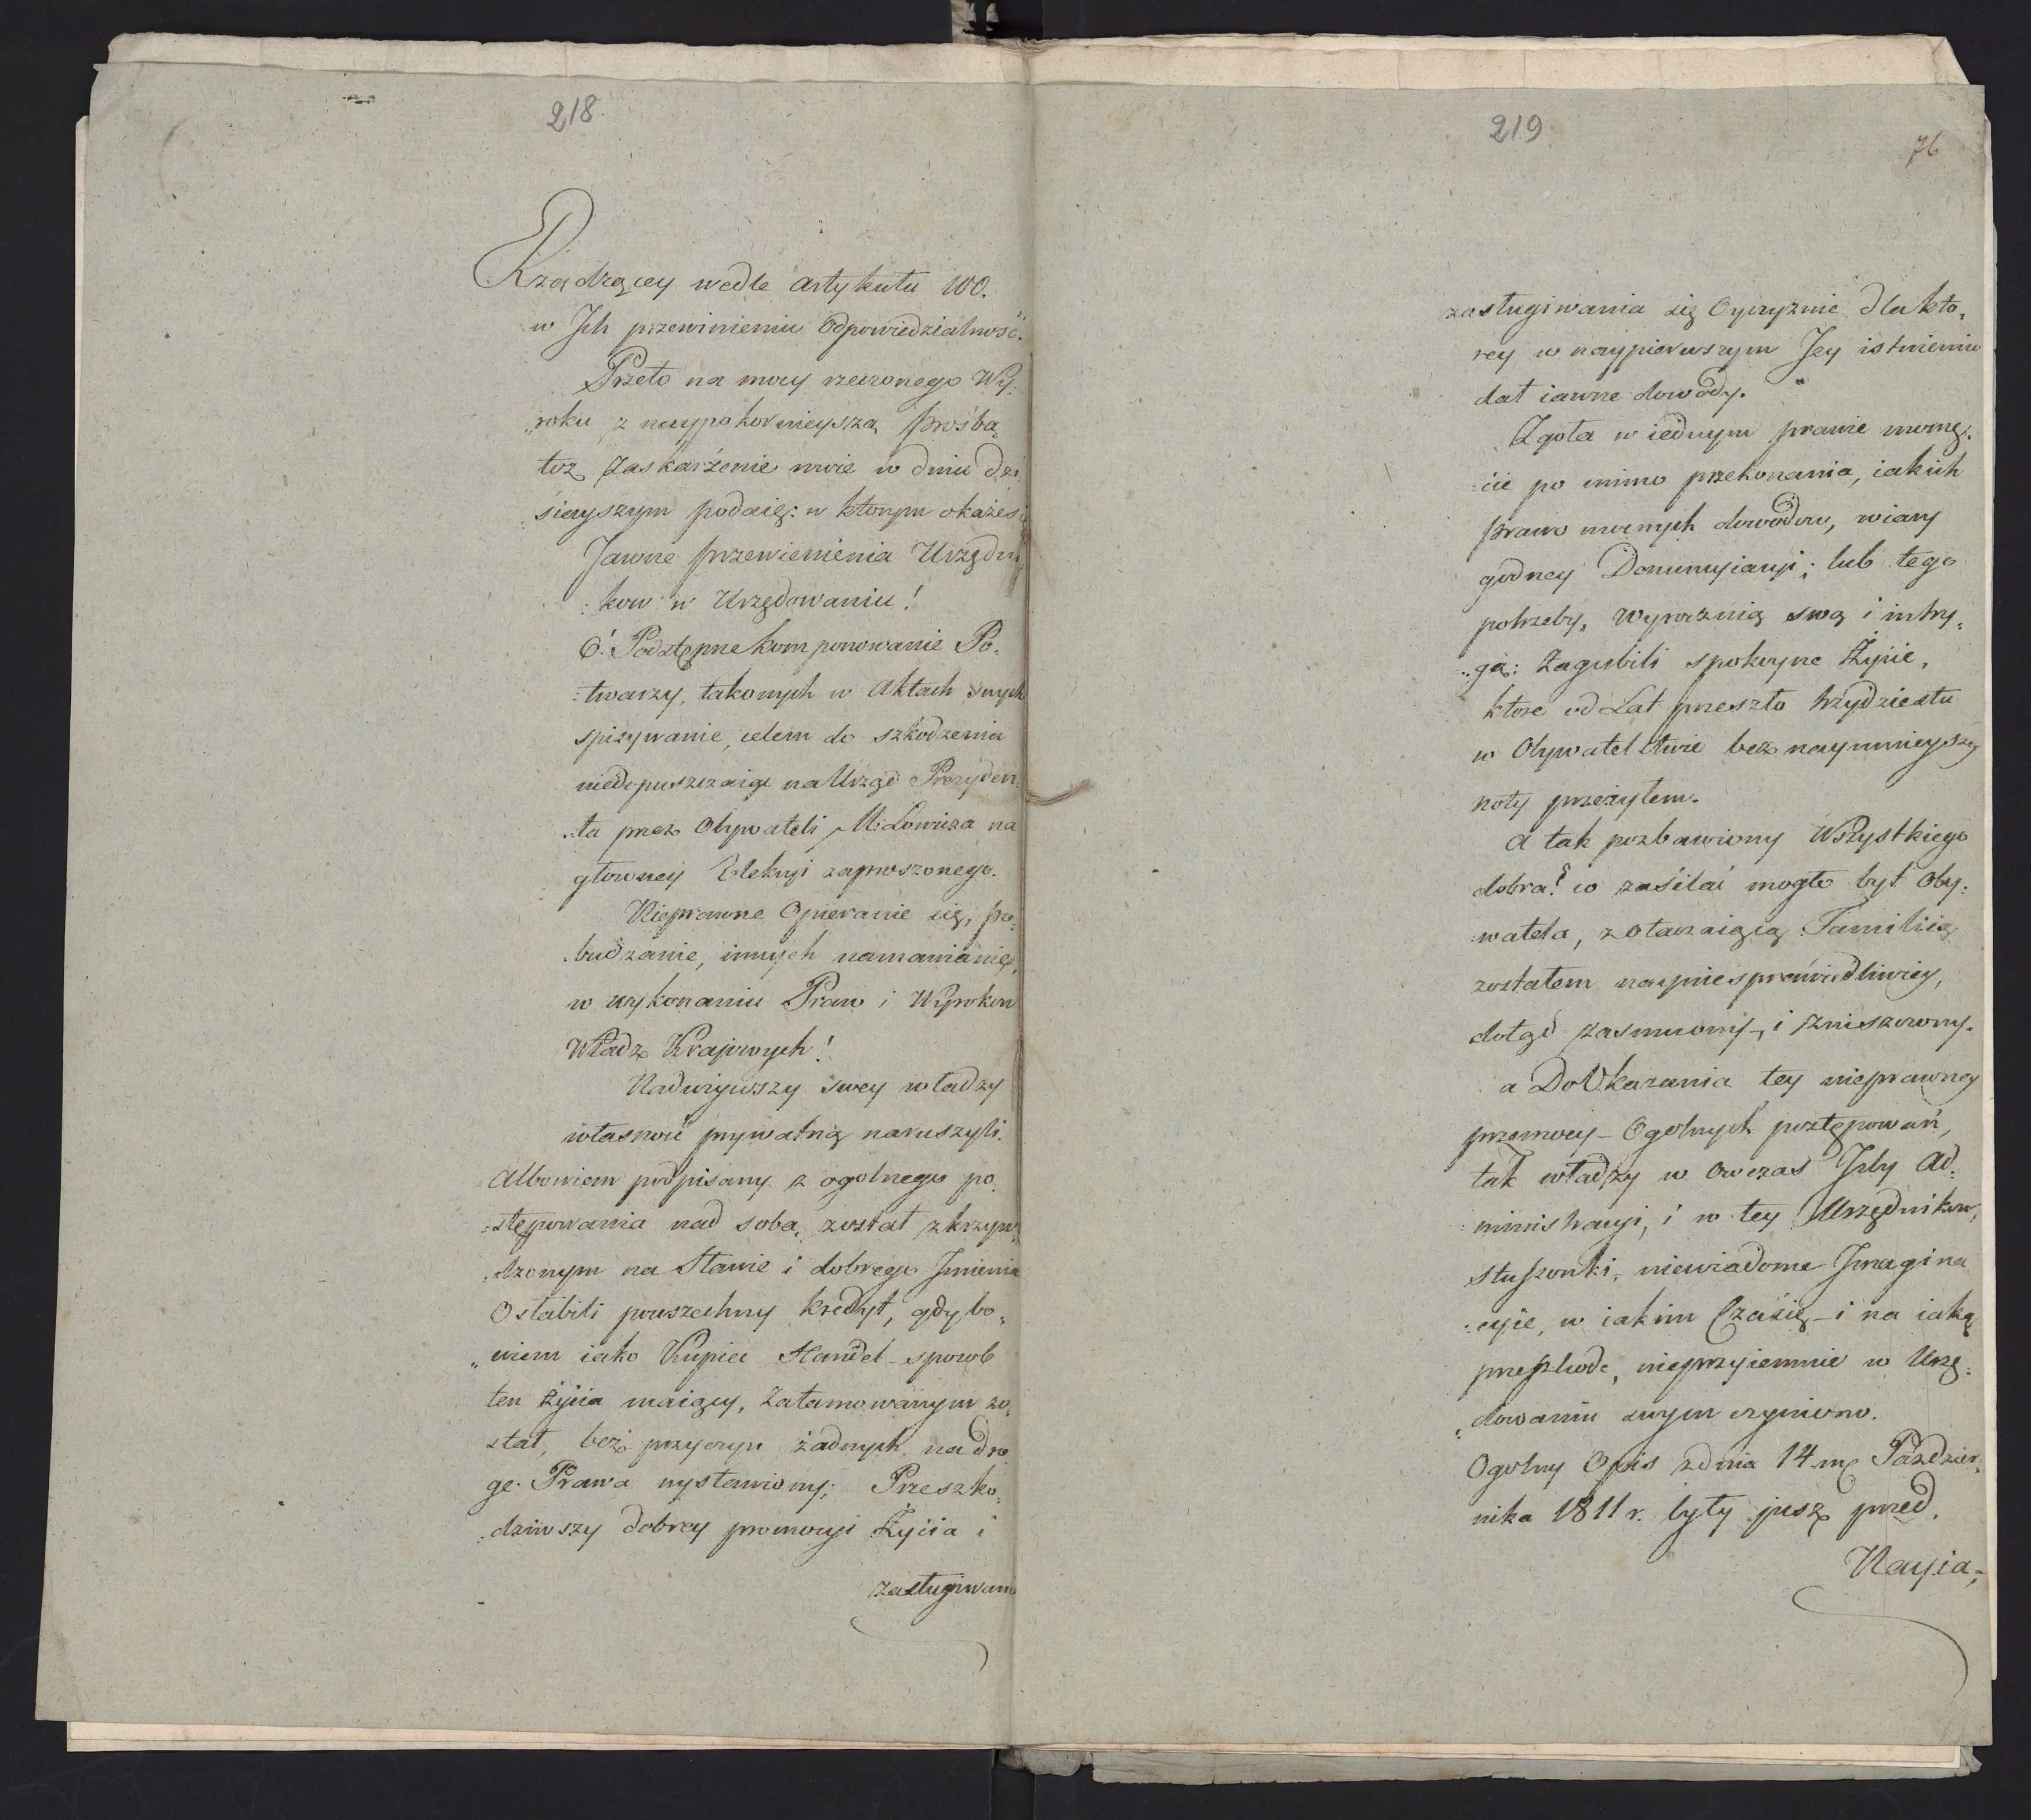 218
Rządzącey wedle artykułu 100.
w Jch przewinieniu Odpowiedzialność.
Przeto na mocy rzeczonego Wy:
„roku z naypokornieyszą prośbą
toż Zaskarżenie moie w dniu dzi
„sieyszym podaię: w którym okażesię
Jawne przewienienia Urzędni
:kow w Urzędowaniu!
6. Podstępne komponowanie Po:
:twarzy, takowych w Aktach swych
spisywanie, celem do szkodzenia
niedopuszczaiąc na Urząd Prezyden:
:ta przez Obywateli M: Łowicza na
głowney Elekcyi zaproszonego.
Nieprawne Opieranie się, po:
:budzanie, innych namawianie,
w wykonaniu Praw i Wyrokow
Władz Krajowych!
Nadużywszy swey władzy
własność prywatną naruszyli.
Albowiem podpisany z ogolnego po:
:stępowania nad sobą, został zkrzyw
:dzonym na Sławie i dobrego Jmienia
Osłabili powszechny kredyt, gdy bo„
„wiem iako Kupiec Handel sposob
ten życia maiący, zatamowanym zo„
stał, bez przyczyn żadnych na dro
ge Prawa wystawiony; Przeszko„
:dziwszy dobrey promocyi Życia i
zasługiwania
219
76
zasługiwania się Oyczyznie dla kto„
rey w naypierwszym Jey istnieniu
dał iawne dowody.
Zgoła w iednym prawie momę:
:cie po mimo przekonania, iakich
prawo mocnych dowodow, wiary
godney Denuncyacyi; lub tego
potrzeby, wyrocznią swą i intry„
„gą: Zagubili spokoyne Życie,
ktore od Lat przeszło trzydziestu
w Obywatelstwie bez naymnieyszey
noty przeżyłem.
A tak pozbawiony Wszystkiego
dobra? co zasilać mogło byt Oby:
:watela, zotaczaiącą Familiią
zostałem nayniesprawiedliwiey,
dotąd zasmucony, i zniszczony.
a Do Ukazania tey nieprawney
przemocy – Ogolnych postępowań,
tak władzy w owczas Jzby Ad:
:ministracyi, i w tey Urzędnikow,
stuszonki, niewiadome Jmagina
:cyie, w iakim Czasię – i na iaką
przeszkode, nieprzyiemnie w Urzę:
„dowaniu swym czyniono.
Ogolny Opis zdnia 14. m Paździer„
nika 1811 r. były jusz przed.
Nayia„